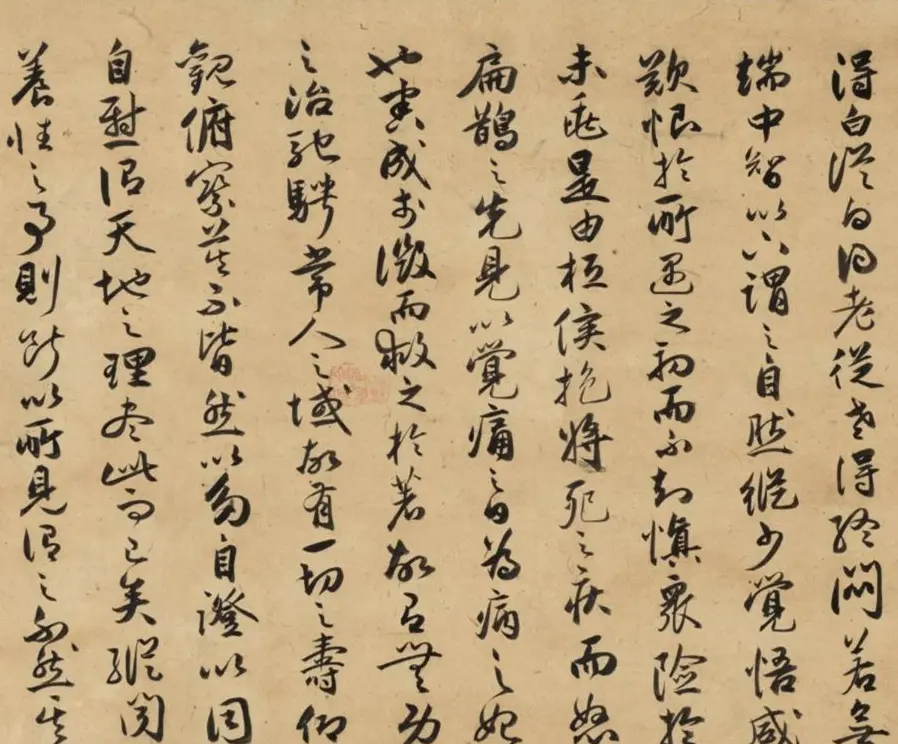 得白從白得老從老得終悶若無
端中智以下謂之自然縱少覺悟咸
歎恨於所遇之初而不知慎衆險於
未兆是由桓侯抱將死之疾而怒
扁鵲之先見以覺痛之日為病之始
也害成於微而救之於著故有無功
之治馳騁常人之域故有一切之壽仰
觀俯察莫不皆然以多自證以同
自慰謂天地之理盡此而已矣縱聞
養性之事則斷以所見謂之不然其